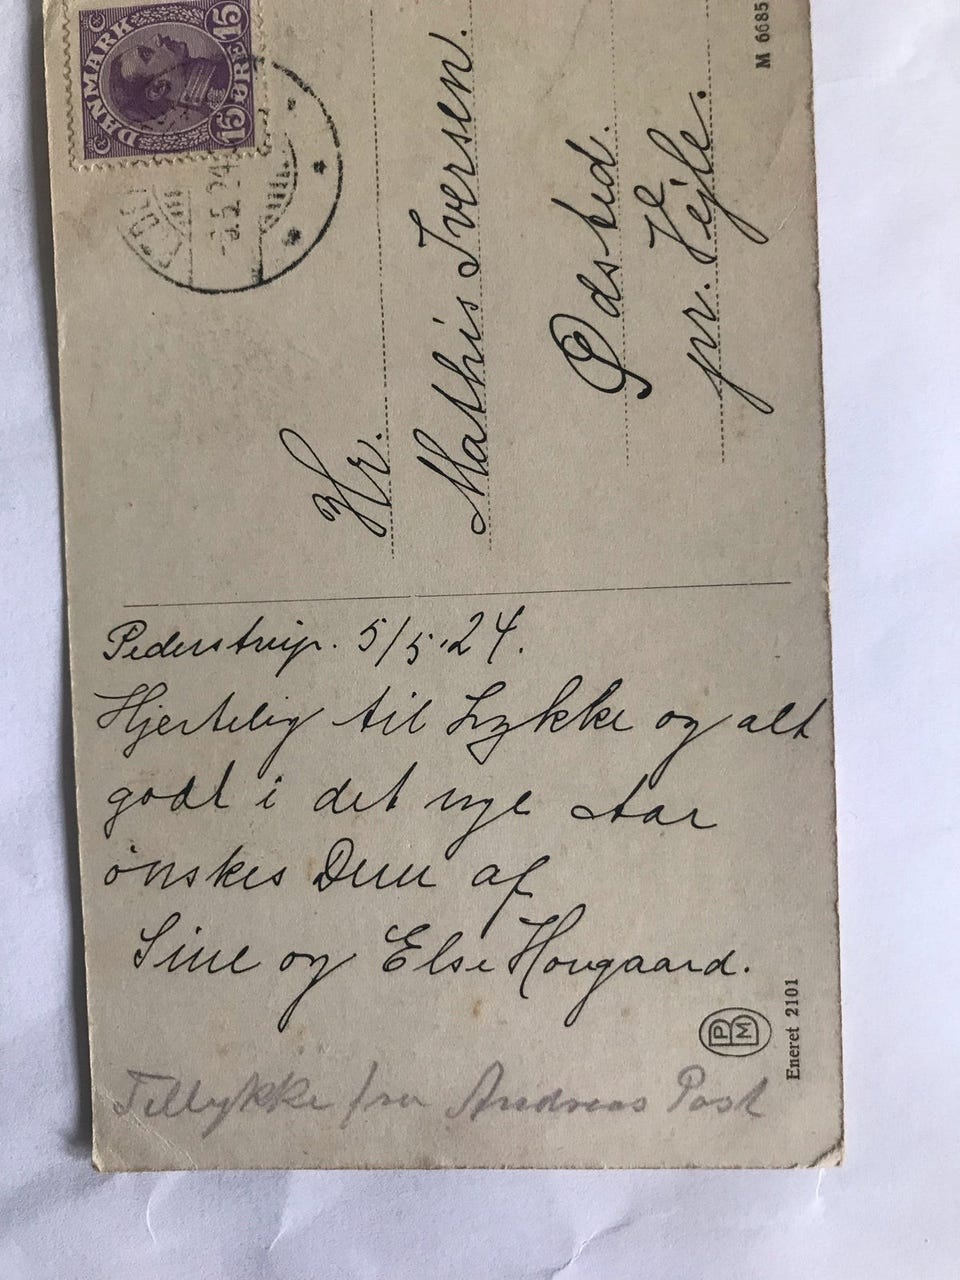 DANMARK
15 ØRE 15
5.5.24
M 6685
Hr.
Mathis Iversen.
Ødsted.
pr. Vejle.
Pederstrup. 5/5.24.
Hjertelig til Lykke og alt
godt i det nye Aar
ønskes Dem af
Sine og Else Hougaard.
PBM
Eneret 2101
Tillykke fra Andreas Post